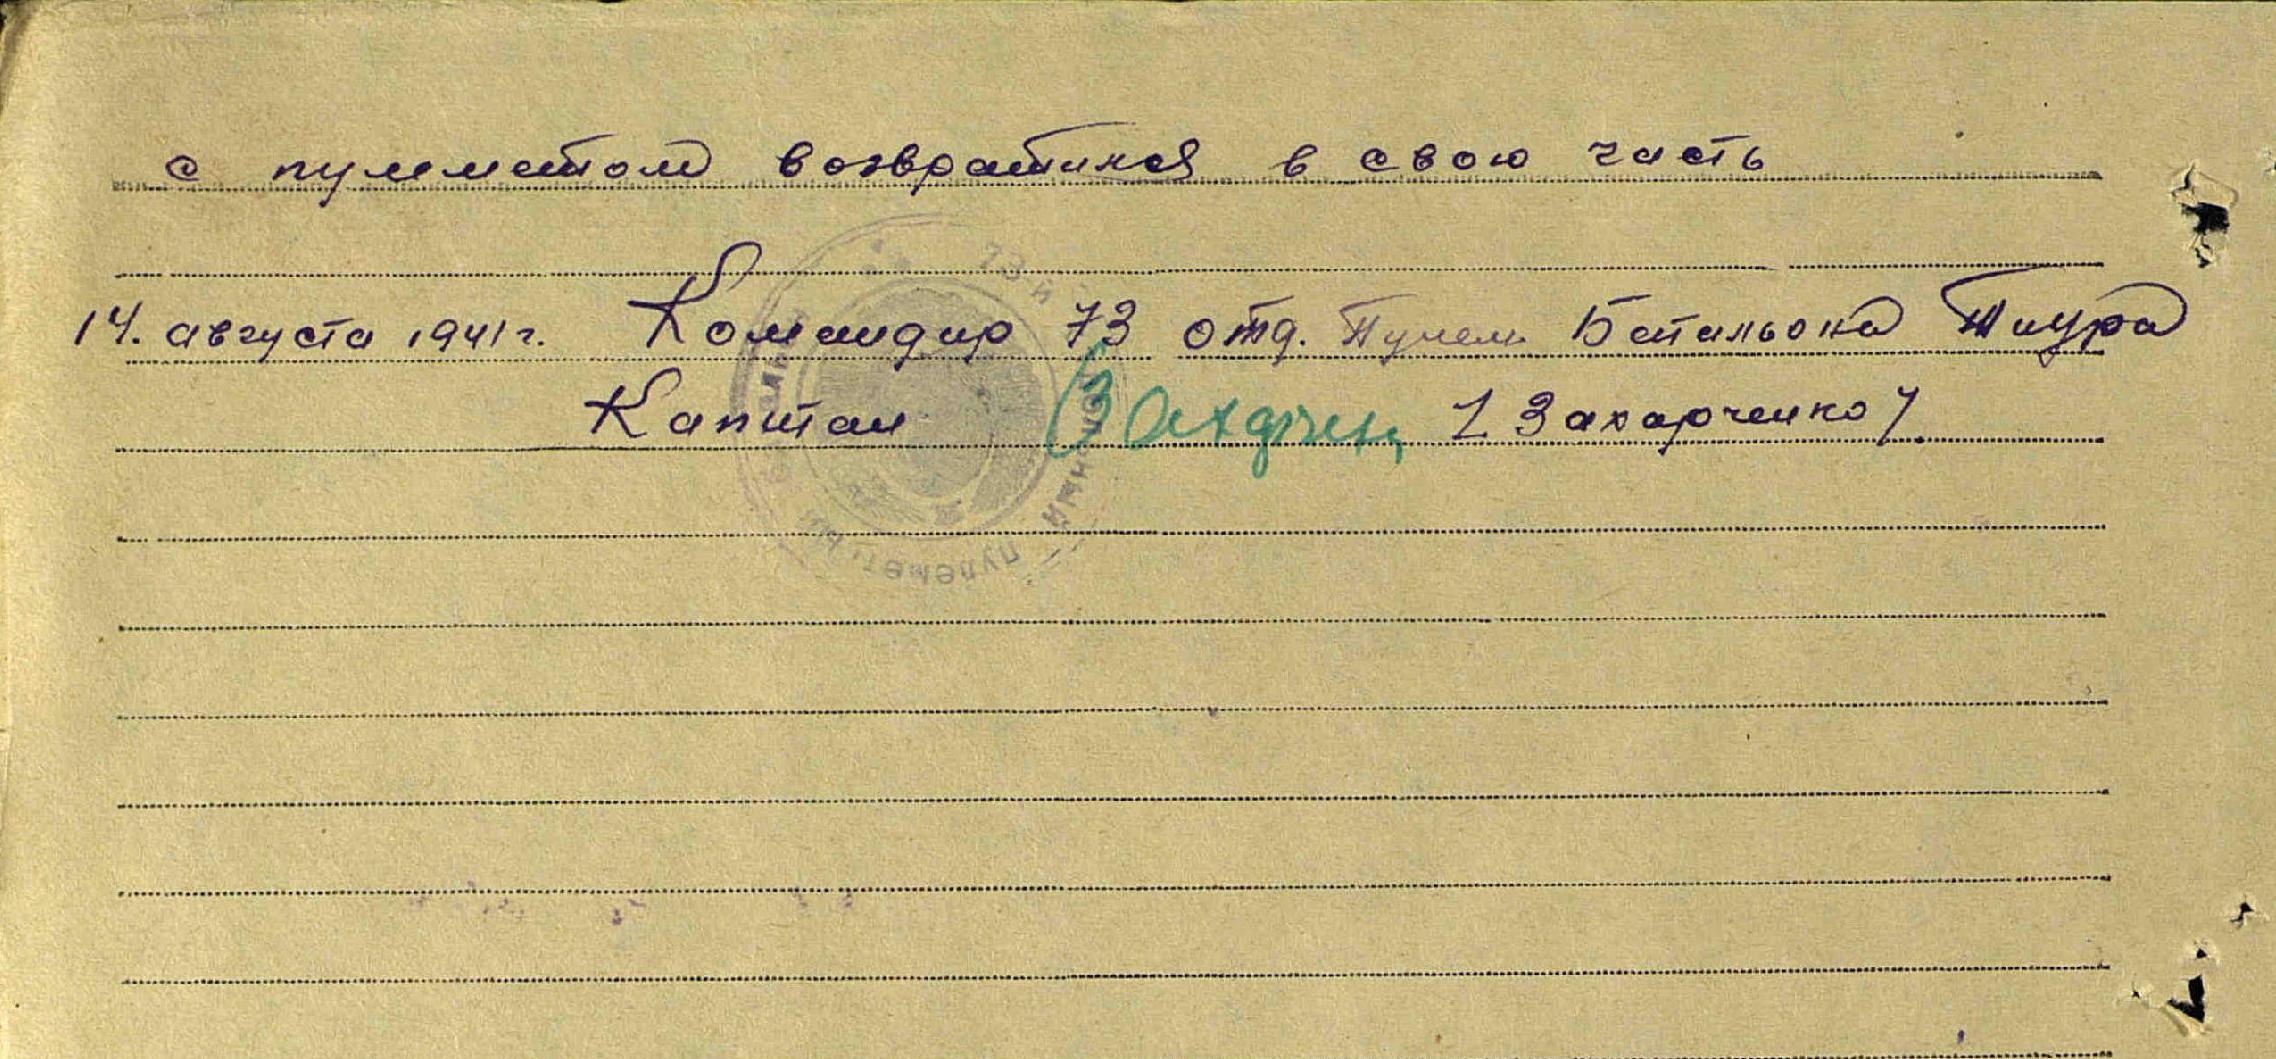 с пулеметом возвратился в свою часть
14. августа 1941 г. Командир 73 отд. Пулем. Батальона Тиура
Капитан Захарченко /Захарченко/.
73-й
пулеметный